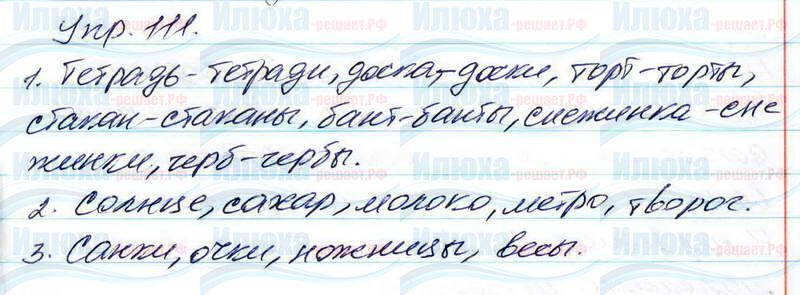 Упр. 111.
1. Тетрадь-тетради, доска-доски, торт-торты,
стакан-стаканы, бант-банты, снежинка-сне
жинки, герб-гербы.
2. Солнце, сахар, молоко, метро, творог.
3. Санки, очки, ножницы, весы.